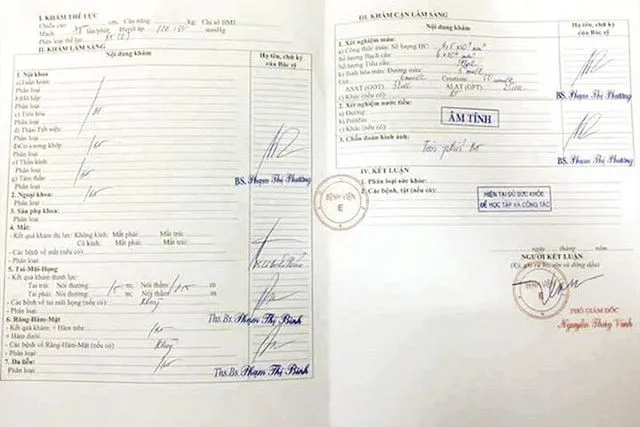 I. KHÁM THỂ LỰC
Chiều cao: cm, Cân nặng: kg, Chỉ số BMI:
Mạch lần/phút, Huyết áp 120 mmHg
Phân loại thể lực:
II. KHÁM LÂM SÀNG
Nội dung khám
Họ tên, chữ ký của Bác sỹ
1. Nội khoa
a) Tuần hoàn
Phân loại
b) Hô hấp
Phân loại
c) Tiêu hóa
Phân loại
d) Thận-Tiết niệu
Phân loại
Phân loại
e) Thần kinh
Phân loại
g) Tâm thần
Phân loại
BS. Phạm Thị Phương
2. Ngoại khoa
Phân loại
3. Sản phụ khoa
Phân loại
4. Mắt:
- Kết quả khám thị lực: Không kính: Mắt phải: Mắt trái:
Có kính: Mắt phải: Mắt trái:
- Các bệnh về mắt (nếu có)
- Phân loại
5. Tai-Mũi-Họng
- Kết quả khám thính lực:
Tai trái: Nói thường 5 m; Nói thầm m
Tai phải: Nói thường m; Nói thầm m
- Các bệnh về tai mũi họng (nếu có) Không
- Phân loại
Ths.Bs. Phạm Thị Bình
6. Răng-Hàm-Mặt
- Kết quả khám: + Hàm trên:
+ Hàm dưới:
- Các bệnh về Răng-Hàm-Mặt (nếu có) Không
- Phân loại
Ths.Bs. Phạm Thị Bình
7. Da liễu:
Phân loại:
Ths.Bs. Phạm Thị Bình
III. KHÁM CẬN LÂM SÀNG
Nội dung khám
Họ tên, chữ ký của Bác sỹ
1. Xét nghiệm máu:
a) Công thức máu: Số lượng HC:
Số lượng Bạch cầu:
Số lượng Tiểu cầu:
b) Sinh hóa máu: Đường máu
Urê: Creatinin:
ASAT (GOT) ALAT (GPT)
c) Khác (nếu có)
BS. Phạm Thị Phương
2. Xét nghiệm nước tiểu:
a) Đường:
b) Prôtêin:
c) Khác (nếu có)
ÂM TÍNH
3. Chẩn đoán hình ảnh:
BS. Phạm Thị Phương
IV. KẾT LUẬN
1. Phân loại sức khỏe:
2. Các bệnh, tật (nếu có):
HIỆN TẠI ĐỦ SỨC KHỎE
ĐỂ HỌC TẬP VÀ CÔNG TÁC
BỆNH VIỆN
E
ngày tháng năm
NGƯỜI KẾT LUẬN
(Ký, ghi rõ họ tên và đóng dấu)
BỆNH VIỆN
E
PHÓ GIÁM ĐỐC